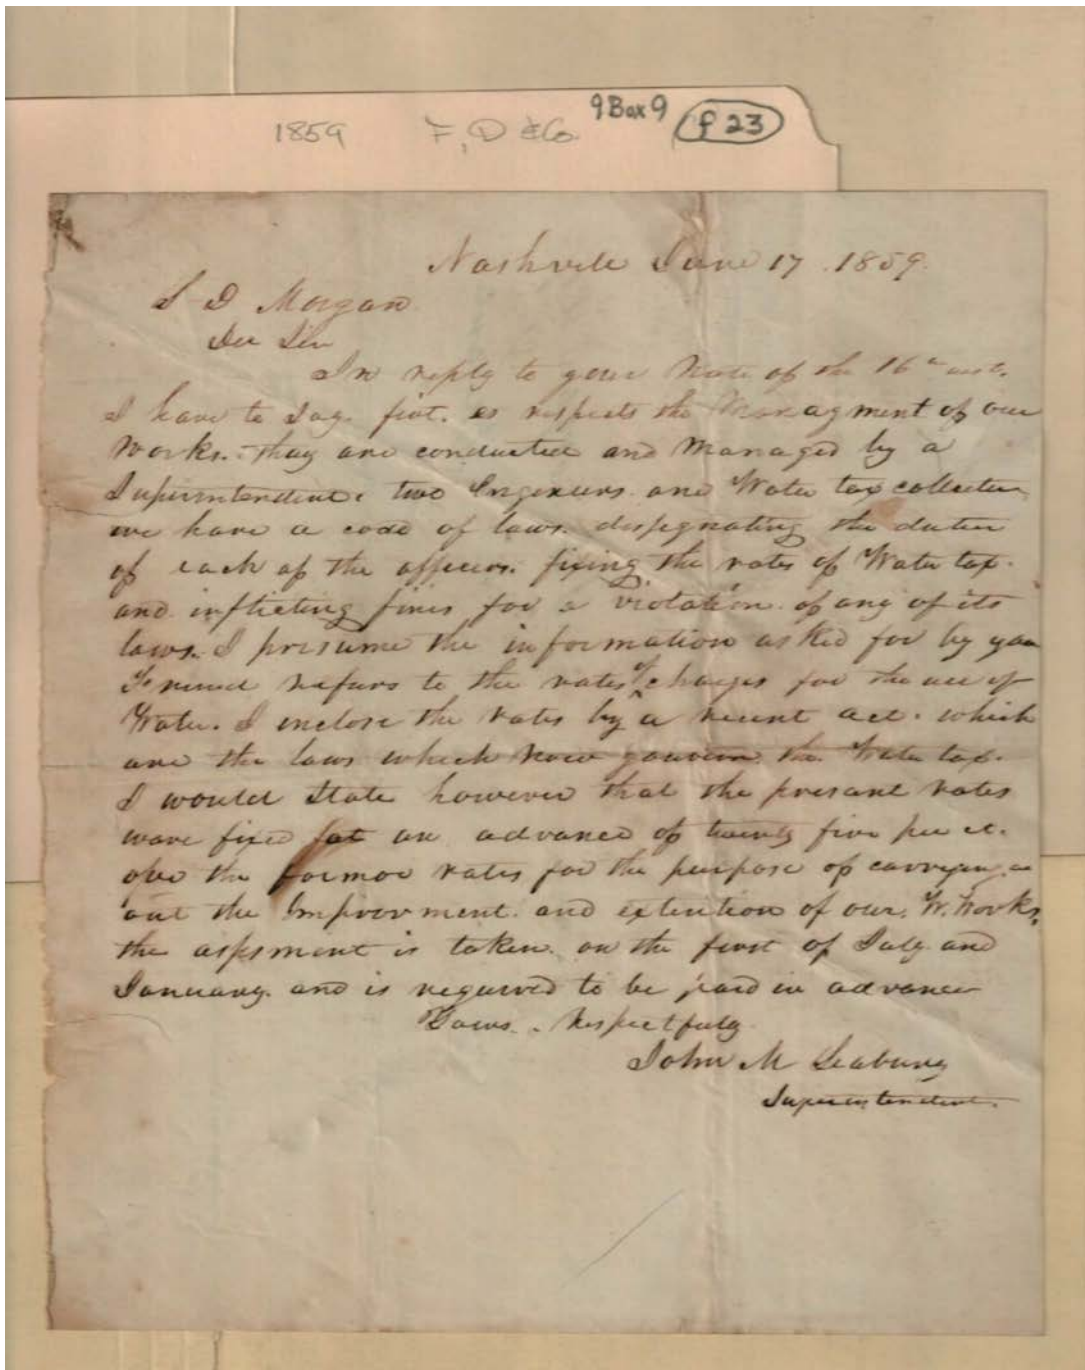 1859 F, D & Co. 9 Box 9 f 23
Nashville June 17. 1859.
S D Morgan
Der Sir
In reply to your Note of the 16th inst.
I have to Say. first. as respects the Managment of our
Works. They are conducted and Managed by a
Superintendent. two Engineers. and Water tax collector
we have a code of laws. dessegnating the duties
of each of the officers. fixing the rates of Water tax.
and inflicting fines for a Violation. of any of its
laws. I presume the information asked for by your
Friend refurs to the rates of charges for the use of
Water. I inclose the rates by a recent act. which
are the laws which now gouvern the Water tax.
I would State however that the presant rates
ware fixed at an advance of twenty five per ct.
over the former rates for the purpose of carrying
out the Improvment. and extention of our. W. Works.
the assesment is taken. on the first of July and
January. and is requiered to be paid in advance
Yours. Respectfuly
John M Seabury
Superintendent.